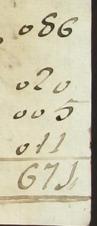 086
020
005
011
671